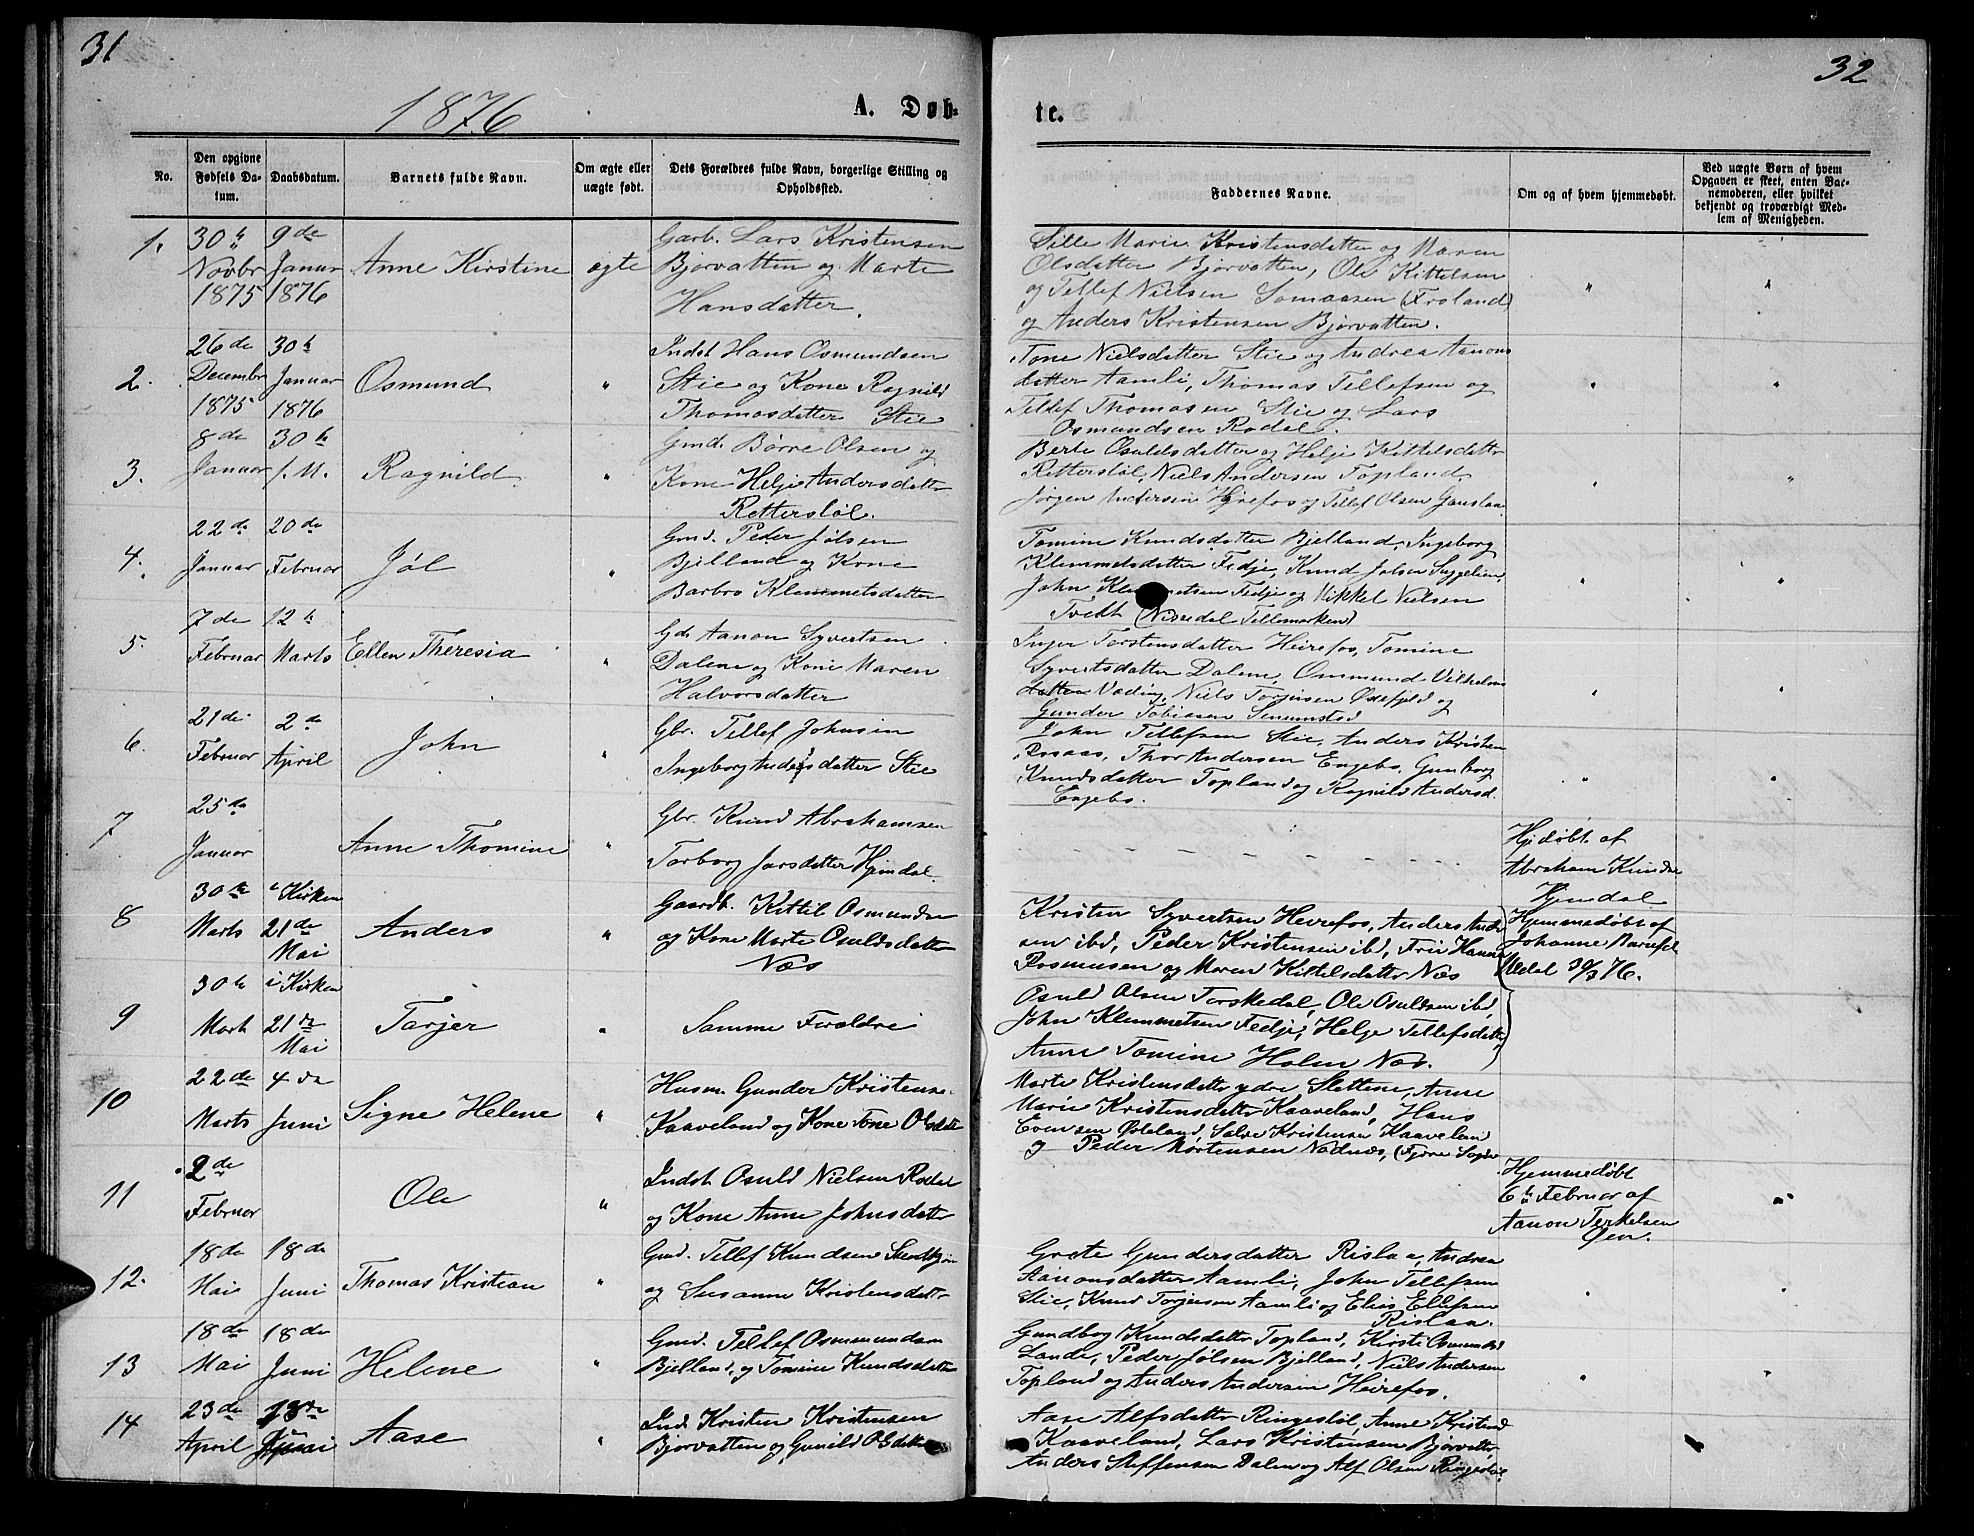 31
1876
A. Døb-
No.
Den opgivne Fødsels Datum.
Daabsdatum.
Barnets fulde Navn.
Om ægte eller uægte født.
Dets Forældres fulde Navn, borgerlige Stilling og Opholdssted.
1. 30te Novbr 1875
9de Januar 1876
Anne Kirstine
ægte
Garb. Lars Kristensen
Bjorvatten og Marte
Hansdatter.
2. 26de Decembr 1875
30te Januar 1876
Osmund
"
Indst Hans Osmundsen
Stie og Kone Ragnild
Thomasdatter Stie
3. 8de Januar
30te f. M.
Ragnild
"
Gmd. Børre Olsen og
Kone Helje Andersdatter
Retterstøl.
4. 22de Januar
20de Februar
Jøl
"
Gmd. Peder Jølsen
Bjelland og Kone
Barbro Klemmetsdatter
5. 7de Februar
12te Marts
Ellen Theresia
"
Gds Aanon Syvertsen
Dalene og Kone Maren
Halvorsdatter
6. 21de Februar
2de April
John
"
Gbr. Tellef Johnsen
Ingeborg Andersdatter Stie
7 25de Januar
Anne Thomine
"
Gbr. Knud Abrahamsen
Torborg Jarsdatter Hjemdal.
8 30te Marts
i Kirken 21de Mai
Anders
"
Gaardb. Kittil Osmundsen
og Kone Marte Osuldsdatter
Næs
9 30te Marts
i Kirken 21de Mai
Tarjer
"
Samme Forældre
10 22de Marts
4de Juni
Signe Helene
"
Husm. Gunder Kristense
Kaaveland og Kone Tone Olsdatt
11 2de Februar
Ole
"
Indst Osuld Nielsen Rodal
og Kone Anne Johnsdatter
12. 18de Mai
18de Juni
Thomas Kristian
"
Gmd. Tellef Knudsen
og Susanne Kristensdatter
13 18de Mai
18de Juni
Helene
"
Gmd. Tellef Osmundsen
Bjelland, og Tomine Knudsdatter
14 23de April
18de Juni
Aase
"
Ind Kristen Kristensen
Bjorvatten og Gunild Olsdatter
32
te.
Faddernes Navne.
Om og af hvem hjemmedøbt.
Ved uægte Børn af hvem Opgaven er skeet, enten Barnemoderen, eller hvilket bekjendt og troværdigt Medlem af Menigheden.
Sille Marie Kristensdatter og Maren
Olsdatter Bjorvatten, Ole Kittelsen
og Tellef Nielsen Somaasen (Froland)
og Anders Kristensen Bjorvatten.
Tone Nielsdatter Stie og Andrea Aanons
datter Aamli, Thomas Tellefsen og
Tellef Thomasen Stie og Lars
Osmundsen Rodal.
Berte Osuldsdatter og Helje Kittelsdatter
Retterstøl, Niels Andersen Topland,
Jørgen Andersen Hirefos og Tellef Olsen Gauslaa.
Tomine Knudsdatter Bjelland, Ingeborg
Klemmetsdatter Fedje, Knud Jølsen
John Klemmetsen Fedje og Mikkel Nielsen
Tvedt (Nissedal Tellemarken)
Inger Torstensdatter Heirefos, Tomine
Syvertsdatter Dalene, Ommund Vilhelms
datter Væding, Niels Torjusen Oxefjeld og
Gunder Tobiassen Simonstad
John Tellefsen Stie, Anders Kristen
Rosaas, Thor Andersen Engebo, Gunborg
Knudsdatter Topland og Ragnild Andersd.
Engebo.
Hjdøbt af
Abraham Knudse
Hjemdal
Kristen Syvertsen Heirefos, Anders Ander
sen ibd, Peder Kristensen ibd, Fru Hanna
Rasmusen og Maren Kittelsdatter Næs
Hjemmedøbt af
Johanne
30/3 76.
Osuld Olsen Torskedal, Ole Osuldsen ibd,
John Klemmetsen Fedje, Helge Tellefsdatter
Anne Tomine Holm Næs.
Marte Kristensdatter ydre Slettene, Anne
Marie Kristensdatter Kaaveland, Hans
Evensen Øieland, Salve Kristensen Kaaveland
og Peder Mortensen
Hjemmedøbt
6te Februar af
Aanon Terkelsen
Grete Gundersdatter Rislaa, Andrea
Aanonsdatter Aamli, John Tellefsen
Stie, Knud Torjusen Aamli og Elias Ellefsen
Rislaa.
Gundborg Knudsdatter Topland, Kirsti Osmunds
Lande, Peder Jølsen Bjelland, Niels Andersen
Topland og Anders Andersen Heirefos.
Aase Alfsdatter Ringestøl, Anne Kristensd
Kaaveland, Lars Kristensen Bjorvatten,
Anders Steffensen Dalen og Alf Olsen Ringestøl.